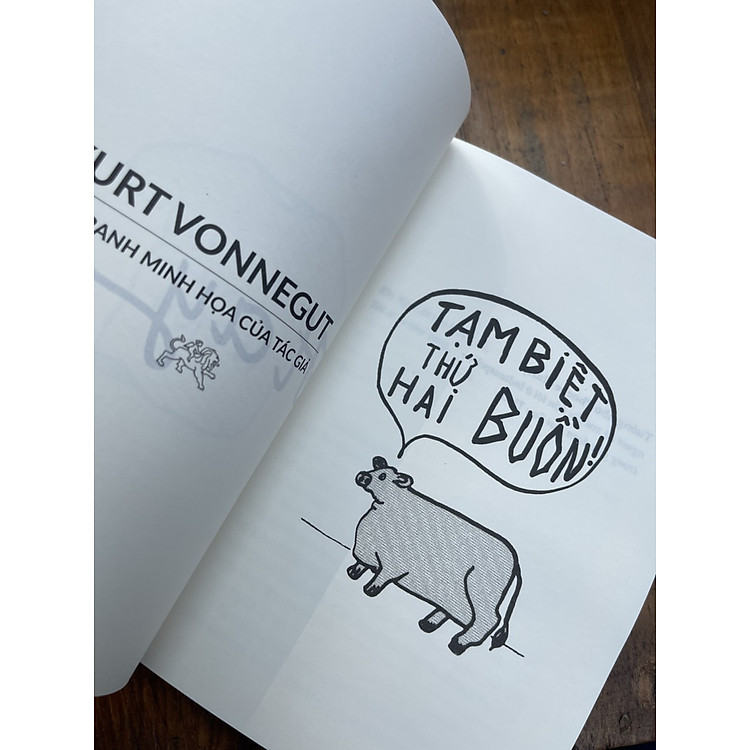 KURT VONNEGUT
RANH MINH HỌA CỦA TÁC GIẢ
TẠM BIỆT
THỨ
HAI BUỒN!